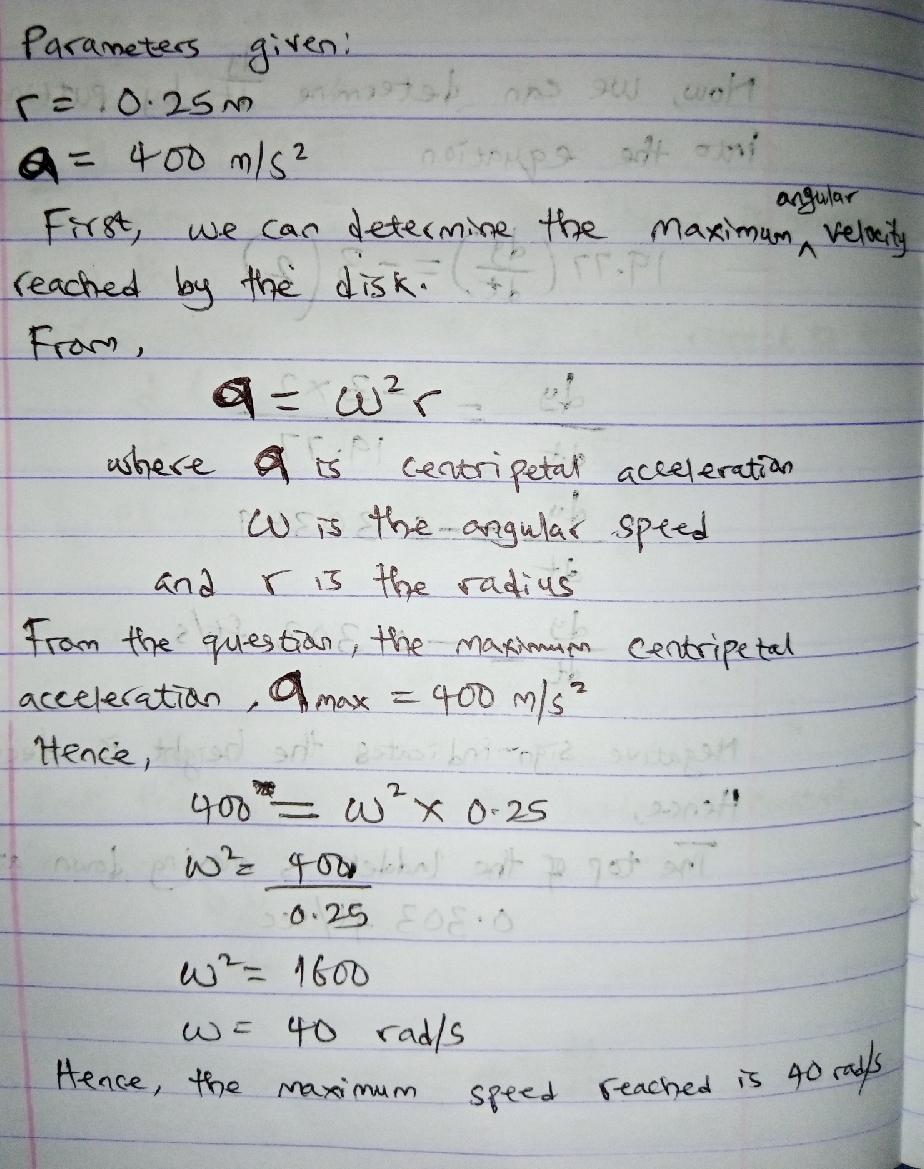 Parameters given:
r = 0.25m
a = 400 m/s²
First, we can determine the maximum ^ angular velocity
reached by the disk.
From,
a = ω²r
where a is centripetal acceleration
ω is the angular speed
and r is the radius
From the question, the maximum centripetal
acceleration, a max = 400 m/s²
Hence,
400 = ω² x 0.25
ω² = 400
0.25
ω² = 1600
ω = 40 rad/s
Hence, the maximum speed reached is 40 rad/s